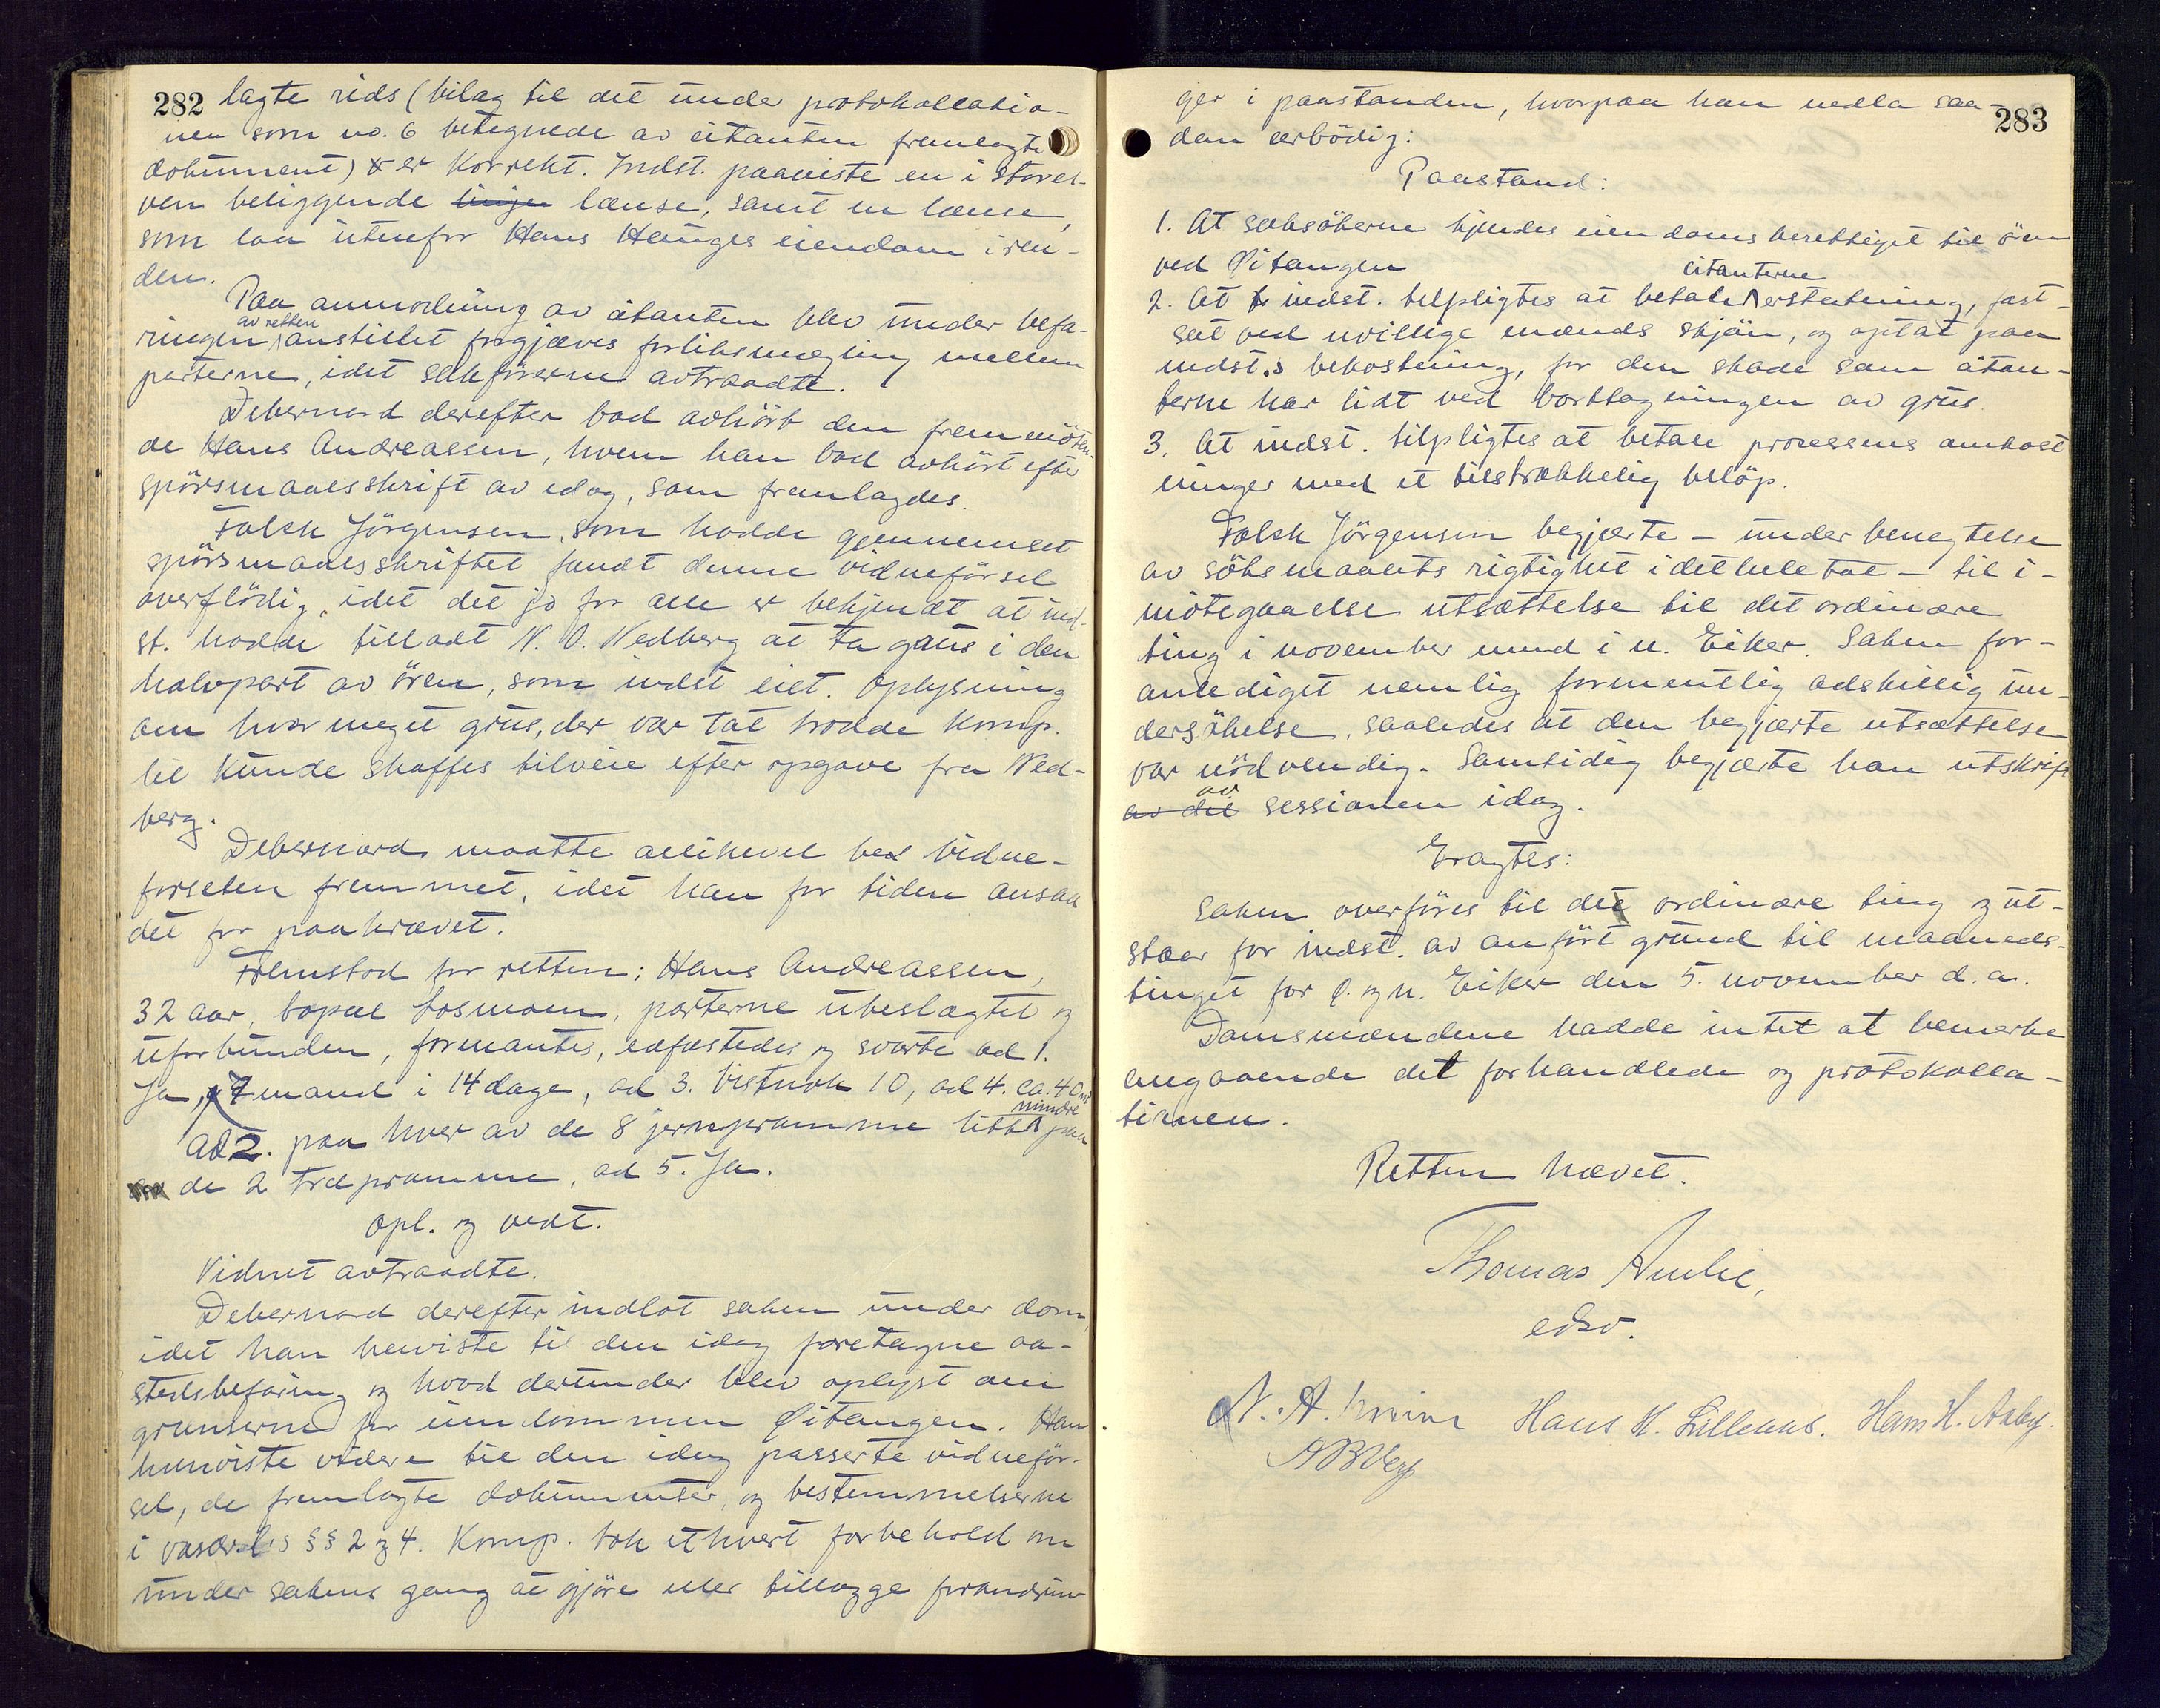 282
lagte rids (bilag til det under protokollatio-
nen som no. 6 betegnede av citanten fremlagte
dokument) er korrekt. Indst. paaviste en i storel-
ven beliggende linjen lænse, samt en lænse,
som laa utenfor Hans Hauges eiendom i ren-
den.
Paa anmodning av citanten blev under befa-
av retten
ringen anstillet forgjæves forliksmegling mellem
parterne, idet sakførerne avtraadte.
Debernard derefter bad avhørt den fremmøten-
de Hans Andreassen, hvem han bad avhørt efter
spörsmaalsskrift av idag, som fremlagdes.
Falck Jörgensen, som hadde gjennemset
spörsmaalsskriftet fandt denne vidneförsel
overflödig, idet det jo for alle er bekjendt at ind-
st. hadde tilladt N. O. Nedberg at ta grus i den
halvpart av ören, som indst eiet. Oplysning
om hvor meget grus, der var tat trodde komp.
let kunde skaffes tilveie efter opgave fra Ned-
berg.
Debernard maatte allikevel bed vidne-
forselen fremmet, idet han for tiden ansaa
det for paakrævet.
Fremstod for retten: Hans Andreassen,
32 aar, bopæl Losmoen, parterne ubeslagtet og
uforbunden, formantes, edfæstedes og svarte ad 1.
Ja, 7 mand i 14 dage, ad 3. Vistnok 10, ad 4. ca. 40 m³
mindre
ad 2. paa hver av de 8 jernpramme litt paa
de 2 træpramme, ad 5. Ja.
Opl. og vedt.
Vidnet avtraadte.
Debernard derefter indlot saken under dom,
idet han henviste til den idag foretagne aa-
stedsbefaring og hvad derunder blev oplyst om
grænserne for eiendommen Øitangen. Han
henviste videre til den idag passerte vidneför-
sel, de fremlagte dokumenter, og bestemmelserne
i vasdr.l's §§ 2 og 4. Komp. tok ethvert forbehold om
under sakens gang at gjöre eller tillægge forandrin-
283
ger i paastanden, hvorpaa han nedla saa-
dan ærbödig:
Paastand:
1. At saksökerne kjendes eiendomsberettiget til ören
ved Øitangen
citanterne
2. At indst. tilpligtes at betale erstatning, fast-
sat ved uvillige mænds skjön, og optat paa
indst.s bekostning, for den skade som citan-
terne har lidt ved borttagningen av grus.
3. At indst. tilpligtes at betale processens omkost
ninger med et tilstrækkelig belöp.
Falck Jörgensen begjærte – under benegtelse
av söksmaalets rigtighet i det hele tat – til i-
mötegaaelse utsættelse til det ordinære
ting i november maned i n. Eiker. Saken for-
anlediget nemlig formentlig adskillig un-
dersökelse, saaledes at den begjærte utsættelse
var nödvendig. Samtidig begjærte han utskrift
av
av det sessionen idag.
Eragtes:
Saken overføres til det ordinære ting og ut-
staar for indst. av anført grund til maaneds-
tinget for ø. og n. Eiker den 5. november d. a.
Domsmændene hadde intet at bemerke
angaaende det forhandlede og protokolla-
tionen.
Retten hævet.
Thomas Amlie,
edsv.
N. A. Hans H. Lilleaas. Hans H. Aaby.